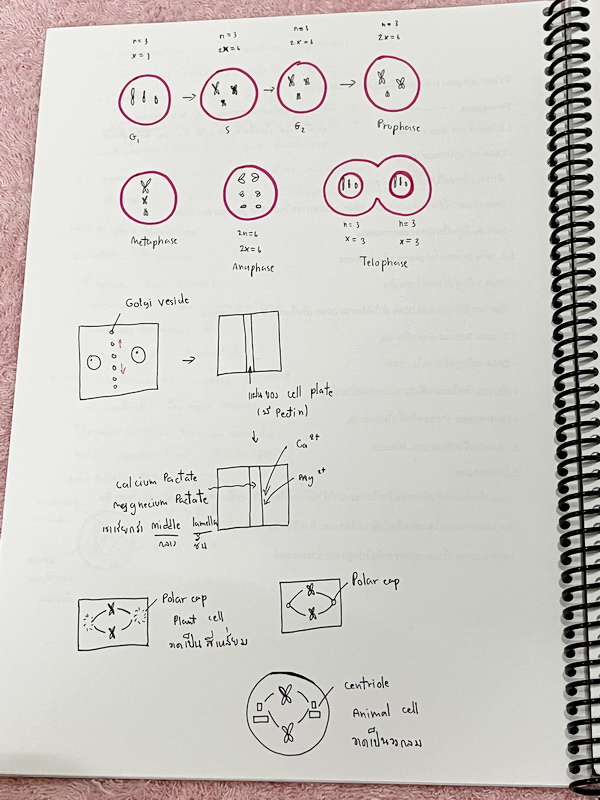 n=3 n=3 n=3 n=3
x=3 2x=6 2x=6 2x=6
G1 S G2 Prophase
n=3 n=3
2n=6 x=3 x=3
2x=6
Metaphase Anaphase Telophase
Golgi veside
แผ่นของ cell plate
(มี Pectin)
Ca2+
Mg2+
Calcium Pactate
Megnecium Pactate
เราเรียกว่า middle lamella
กลาง ชั้น
Polar cap
Plant cell
วาดเป็นสี่เหลี่ยม
Polar cap
Centriole
Animal cell
วาดเป็นวงกลม